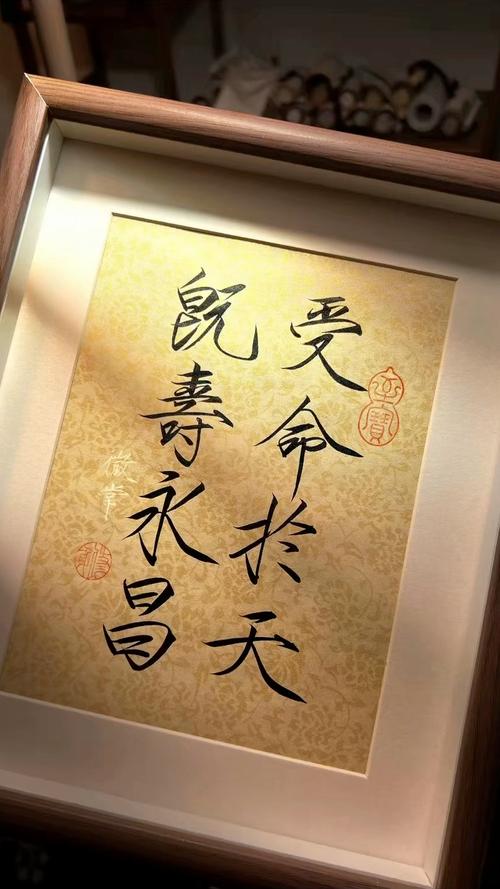 受命於天
既壽永昌